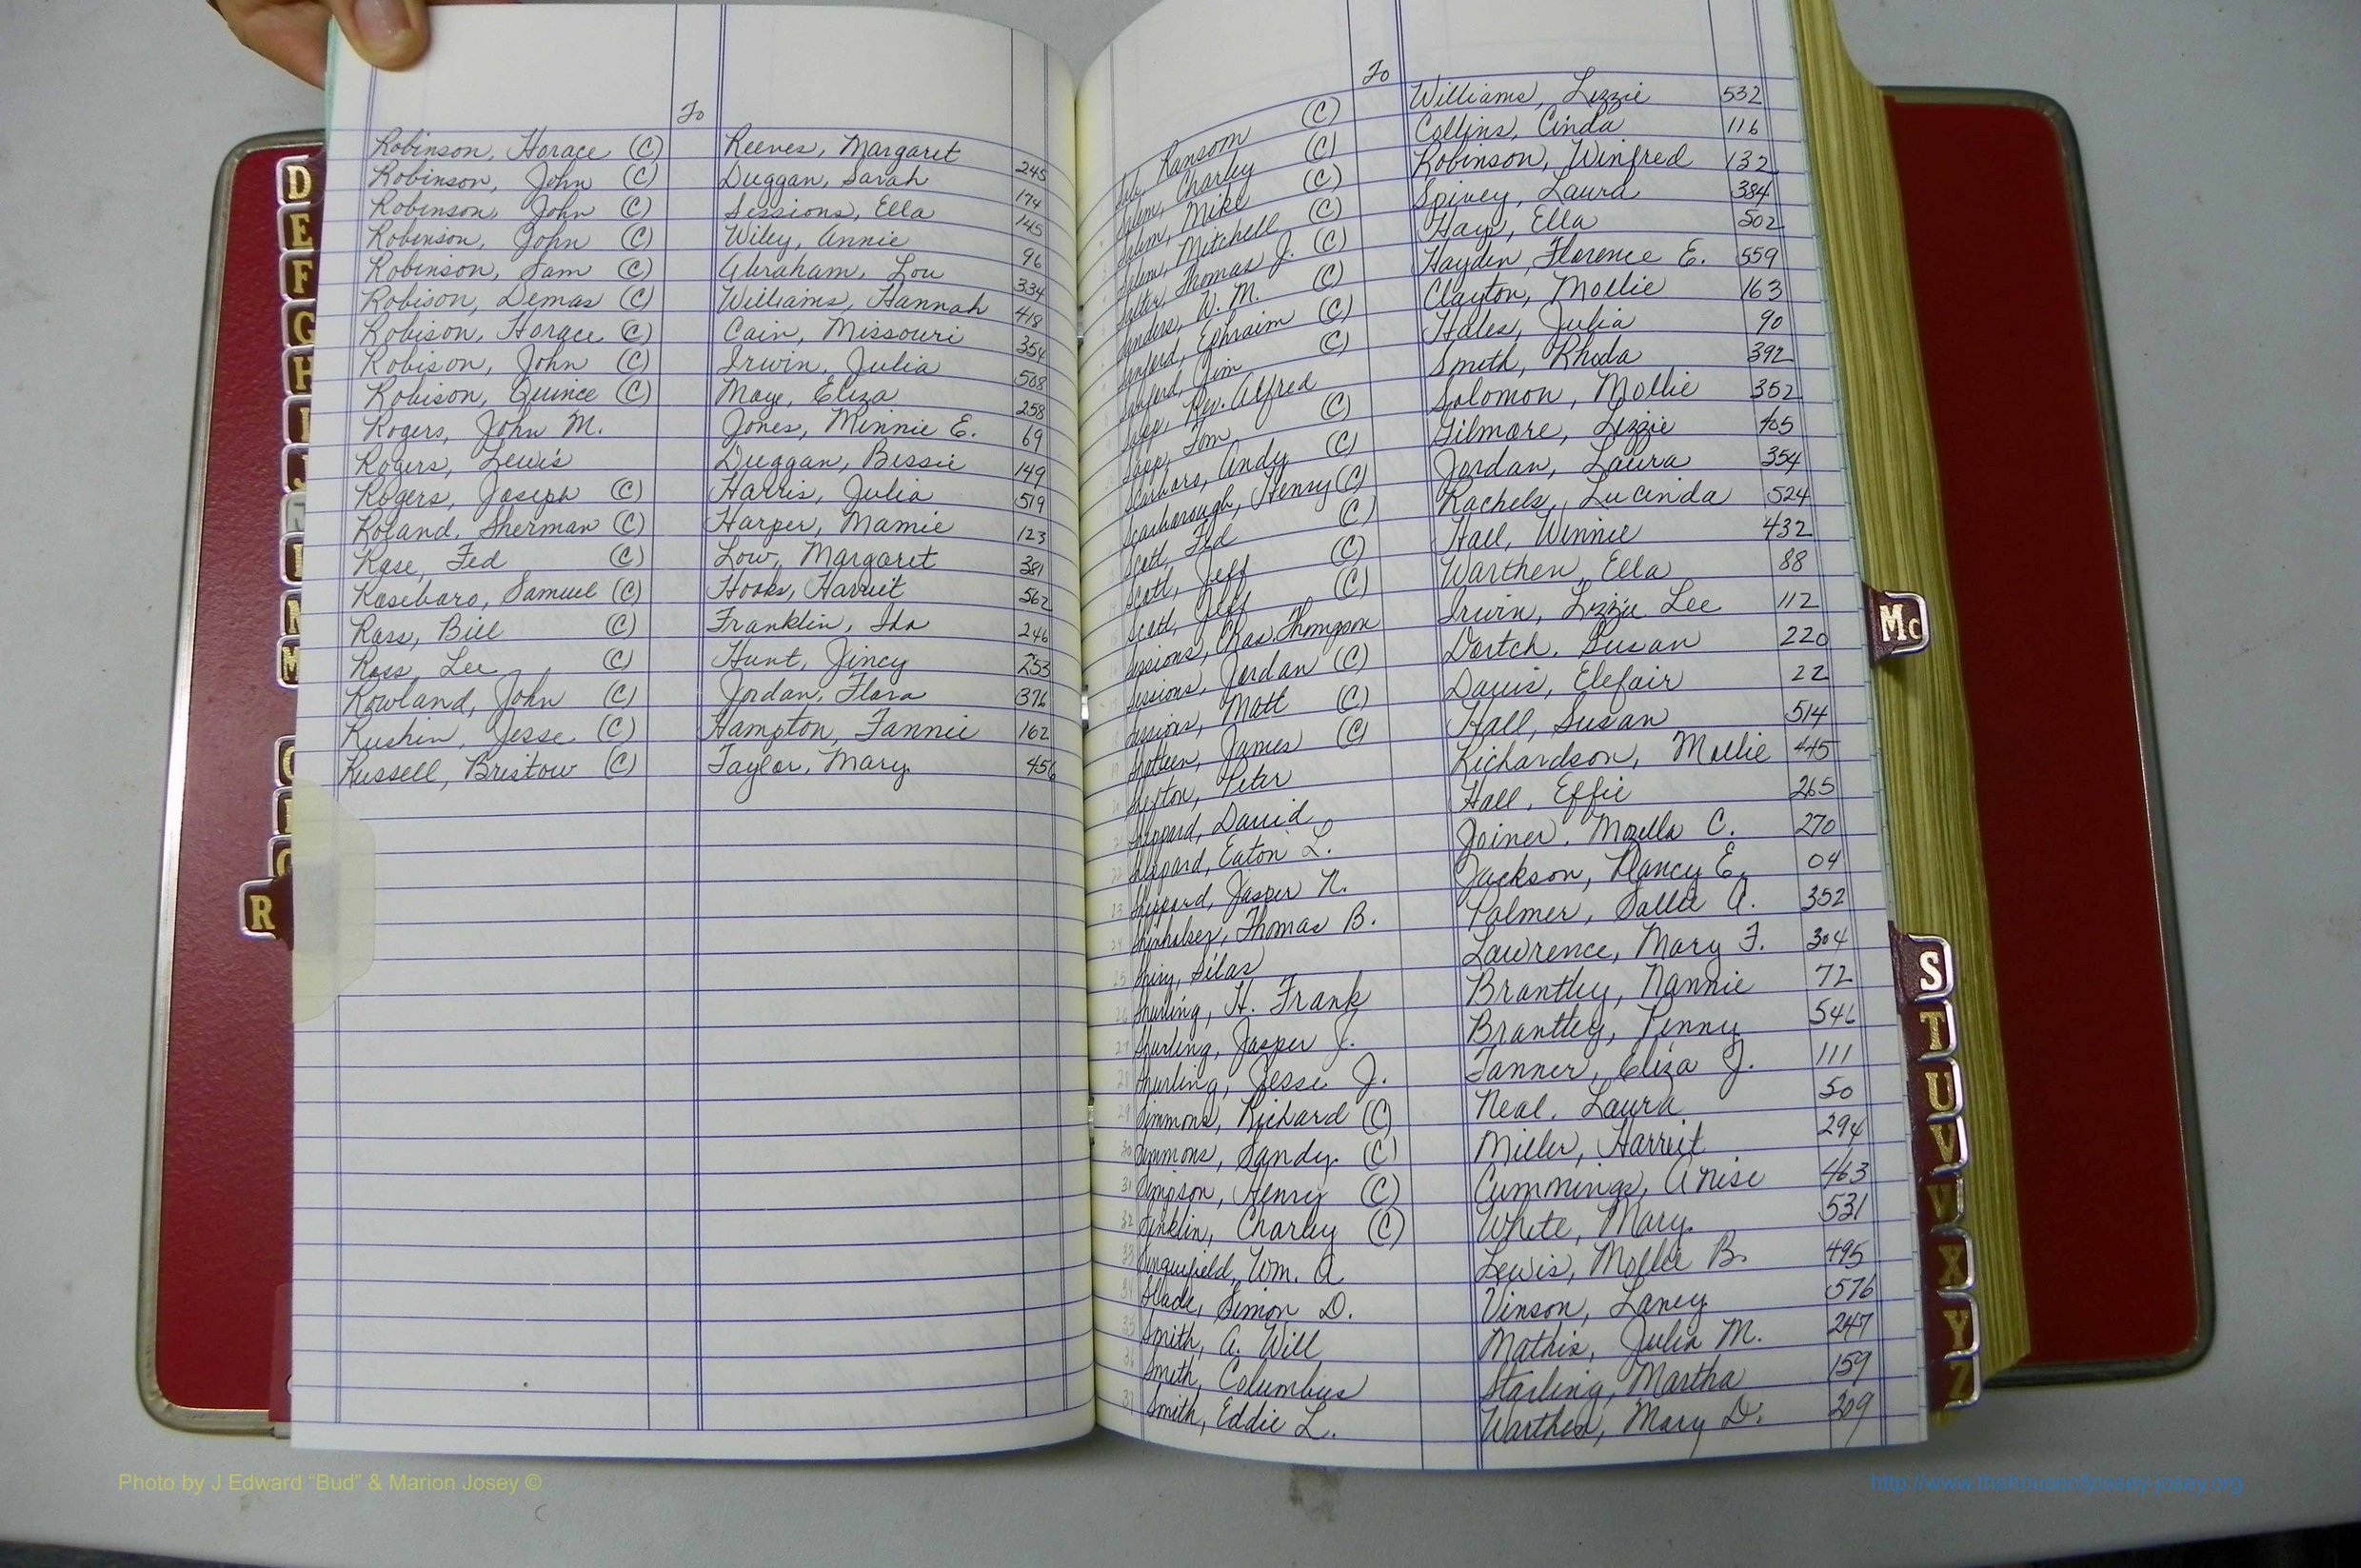 To
Robinson, Horace (C) Reeves, Margaret 245
Robinson, John (C) Duggan, Sarah 174
Robinson, John (C) Sessions, Ella 145
Robinson, John (C) Wiley, Annie 96
Robinson, Sam (C) Abraham, Lou 334
Robison, Demas (C) Williams, Hannah 418
Robison, Horace (C) Cain, Missouri 354
Robison, John (C) Irwin, Julia 508
Robison, Quince (C) Maye, Eliza 258
Rogers, John M. Jones, Minnie E. 69
Rogers, Lewis Duggan, Bessie 149
Rogers, Joseph (C) Harris, Julia 519
Roland, Sherman (C) Harper, Mamie 123
Rose, Fed (C) Low, Margaret 381
Roseboro, Samuel (C) Hooks, Harriet 562
Ross, Bill (C) Franklin, Ida 246
Ross, Lee (C) Hunt, Jincy 253
Rowland, John (C) Jordan, Flora 376
Rushin, Jesse (C) Hampton, Fannie 162
Russell, Bristow (C) Taylor, Mary 456
To
Ransom (C) Williams, Lizzie 532
Salem, Charley (C) Collins, Cinda 116
Salem, Mike (C) Robinson, Winfred 132
Salem, Mitchell (C) Spivey, Laura 384
Salter, Thomas J. (C) Hay, Ella 502
Sanders, W. M. (C) Hayden, Florence E. 559
Sanford, Ephraim (C) Clayton, Mollie 163
Sanford, Jim (C) Hales, Julia 90
Sapp, Rev. Alfred Smith, Rhoda 392
Sapp, Tom (C) Solomon, Mollie 352
Scarboro, Andy (C) Gilmore, Lizzie 405
Scarborough, Henry (C) Jordan, Laura 354
Scott, Fed (C) Rachels, Lucinda 524
Scott, Jeff (C) Hall, Winnie 432
Scott, Jeff (C) Warthen, Ella 88
Sessions, Chas Thompson Irwin, Lizzie Lee 112
Sessions, Jordan (C) Dortch, Susan 220
Sessions, Matt (C) Davis, Elefair 22
James (C) Hall, Susan 514
Sexton, Peter Richardson, Mollie 445
Sheppard, David Hall, Effie 265
Sheppard, Eaton L. Joiner, Mozella C. 270
Sheppard, Jasper N. Jackson, Nancy E. 04
Shinholser, Thomas B. Palmer, Sallie A. 352
Silas Lawrence, Mary F. 304
Shurling, H. Frank Brantley, Nannie 72
Shurling, Jasper J. Brantley, Penny 546
Shurling, Jesse J. Tanner, Eliza J. 111
Simmons, Richard (C) Neal, Laura 50
Simmons, Sandy (C) Miller, Harriet 294
Simpson, Henry (C) Cummings, Anise 463
Sinklin, Charley (C) White, Mary 531
Sinquefield, Wm. A. Lewis, Mollie B. 495
Slade, Simon D. Vinson, Laney 576
Smith, A. Will Mathis, Julia M. 247
Smith, Columbus Starling, Martha 159
Smith, Eddie L. Warthen, Mary D. 309
D
E
F
G
H
I
J
M
R
Mc
S
T
U
V
X
Y
Z
Photo by J Edward “Bud” & Marion Josey ©